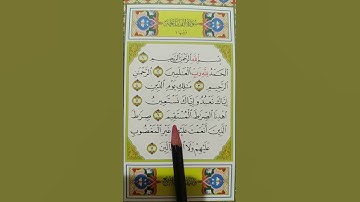 بِسْمِ اللَّهِ الرَّحْمَٰنِ الرَّحِيمِ
الْحَمْدُ لِلَّهِ رَبِّ الْعَالَمِينَ الرَّحْمَٰنِ
الرَّحِيمِ مَالِكِ يَوْمِ الدِّينِ
إِيَّاكَ نَعْبُدُ وَإِيَّاكَ نَسْتَعِينُ
اهْدِنَا الصِّرَاطَ الْمُسْتَقِيمَ صِرَاطَ
الَّذِينَ أَنْعَمْتَ عَلَيْهِمْ غَيْرِ الْمَغْضُوبِ
عَلَيْهِمْ وَلَا الضَّالِّينَ